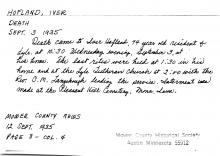 HOFLAND, IVER
DEATH
SEPT. 3 1935
Death came to Iver Hofland, 74 year old resident of
Lyle, at 10:30 Wednesday evening, September 3, at
his home. The last rites were held at 1:30 in his
home and at the Lyle Lutheran Church at 2:00 with the
Rev. O. M. leading the service. Interment was
made at the Pleasant Hill Cemetery, Mona, Iowa.
MOWER COUNTY NEWS
12 SEPT. 1935
PAGE 3 - COL. 4
Mower County Historical Society
Austin Minnesota 55912